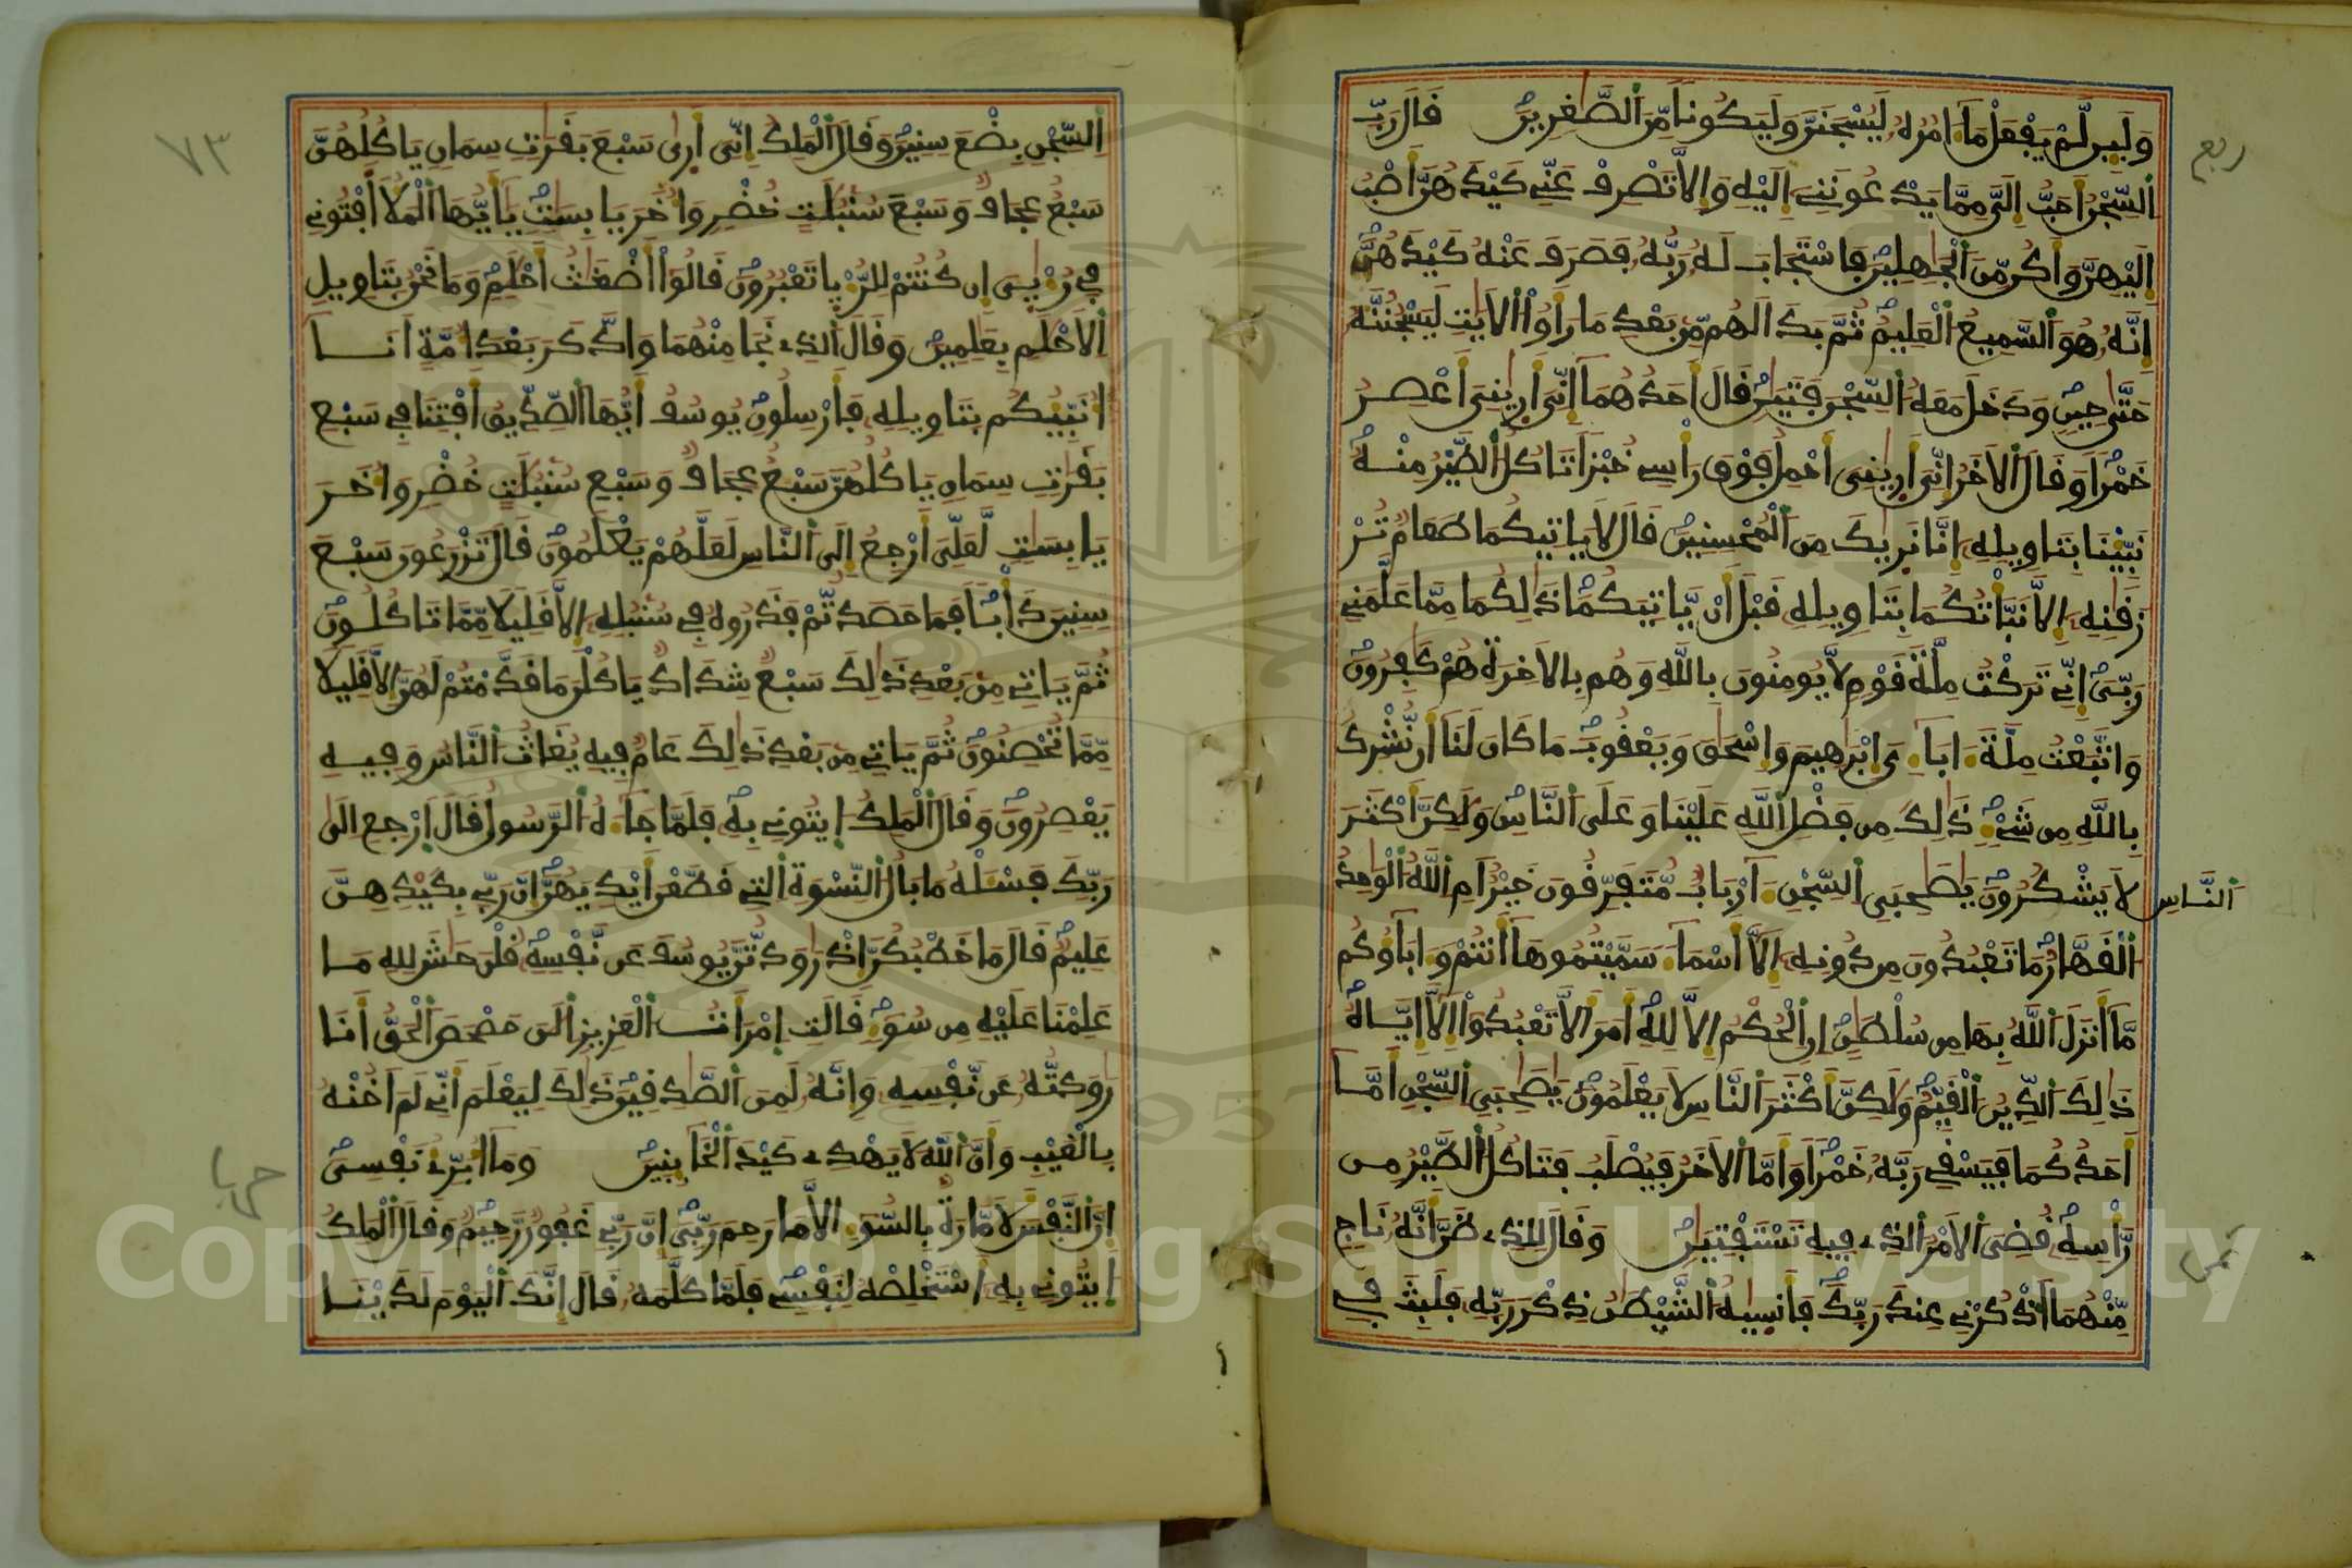 وَلَئِن لَّمْ يَفْعَلْ مَا ءَامُرُهُ لَيُسْجَنَنَّ وَلَيَكُونًا مِّنَ ٱلصَّٰغِرِينَ قَالَ رَبِّ
ربع
ٱلسِّجْنُ أَحَبُّ إِلَيَّ مِمَّا يَدْعُونَنِي إِلَيْهِ وَإِلَّا تَصْرِفْ عَنِّي كَيْدَهُنَّ أَصْبُ
إِلَيْهِنَّ وَأَكُن مِّنَ ٱلْجَٰهِلِينَ فَاسْتَجَابَ لَهُ رَبُّهُ فَصَرَفَ عَنْهُ كَيْدَهُنَّ
إِنَّهُ هُوَ ٱلسَّمِيعُ ٱلْعَلِيمُ ثُمَّ بَدَا لَهُم مِّنۢ بَعْدِ مَا رَأَوُاْ ٱلْأَيَٰتِ لَيَسْجُنُنَّهُ
حَتَّىٰ حِينٍ وَدَخَلَ مَعَهُ ٱلسِّجْنَ فَتَيَٰنِ قَالَ أَحَدُهُمَا إِنِّيَ أَرَىٰنِيَ أَعْصِرُ
خَمْرًا وَقَالَ ٱلْأَخَرُ إِنِّيَ أَرَىٰنِيَ أَحْمِلُ فَوْقَ رَأْسِي خُبْزًا تَاكُلُ ٱلطَّيْرُ مِنْهُ
نَبِّئْنَا بِتَاوِيلِهِ إِنَّا نَرَىٰكَ مِنَ ٱلْمُحْسِنِينَ قَالَ لَا يَاتِيكُمَا طَعَامٌ تُرْ
زَقَٰنِهِ إِلَّا نَبَّأْتُكُمَا بِتَاوِيلِهِ قَبْلَ أَنْ يَّاتِيَكُمَا ذَٰلِكُمَا مِمَّا عَلَّمَنِي
رَبِّيَ إِنِّي تَرَكْتُ مِلَّةَ قَوْمٍ لَّا يُومِنُونَ بِاللَّهِ وَهُم بِالْأَخِرَةِ هُمْ كَٰفِرُونَ
وَاتَّبَعْتُ مِلَّةَ ءَابَآءِيَ إِبْرَٰهِيمَ وَإِسْحَٰقَ وَيَعْقُوبَ مَا كَانَ لَنَا أَن نُّشْرِكَ
بِاللَّهِ مِن شَيْءٍ ذَٰلِكَ مِن فَضْلِ ٱللَّهِ عَلَيْنَا وَعَلَى ٱلنَّاسِ وَلَٰكِنَّ أَكْثَرَ
ٱلنَّاسِ لَا يَشْكُرُونَ يَٰصَٰحِبَيِ ٱلسِّجْنِ ءَأَرْبَابٌ مُّتَفَرِّقُونَ خَيْرٌ أَمِ ٱللَّهُ ٱلْوَٰحِدُ
ٱلْقَهَّارُ مَا تَعْبُدُونَ مِن دُونِهِ إِلَّا أَسْمَآءً سَمَّيْتُمُوهَا أَنتُمْ وَءَابَآؤُكُم
مَّا أَنزَلَ ٱللَّهُ بِهَا مِن سُلْطَٰنٍ إِنِ ٱلْحُكْمُ إِلَّا لِلَّهِ أَمَرَ أَلَّا تَعْبُدُواْ إِلَّا إِيَّاهُ
ذَٰلِكَ ٱلدِّينُ ٱلْقَيِّمُ وَلَٰكِنَّ أَكْثَرَ ٱلنَّاسِ لَا يَعْلَمُونَ يَٰصَٰحِبَيِ ٱلسِّجْنِ أَمَّا
أَحَدُكُمَا فَيَسْقِي رَبَّهُ خَمْرًا وَأَمَّا ٱلْأَخَرُ فَيُصْلَبُ فَتَاكُلُ ٱلطَّيْرُ مِن
رَّأْسِهِ قُضِيَ ٱلْأَمْرُ ٱلَّذِي فِيهِ تَسْتَفْتِيَٰنِ وَقَالَ لِلَّذِي ظَنَّ أَنَّهُ نَاجٍ
ثمن
مِّنْهُمَا ٱذْكُرْنِي عِندَ رَبِّكَ فَأَنسَىٰهُ ٱلشَّيْطَٰنُ ذِكْرَ رَبِّهِ فَلَبِثَ فِي
٧٣
ٱلسِّجْنِ بِضْعَ سِنِينَ وَقَالَ ٱلْمَلِكُ إِنِّيَ أَرَىٰ سَبْعَ بَقَرَٰتٍ سِمَانٍ يَاكُلُهُنَّ
سَبْعٌ عِجَافٌ وَسَبْعَ سُنۢبُلَٰتٍ خُضْرٍ وَأُخَرَ يَابِسَٰتٍ يَٰأَيُّهَا ٱلْمَلَأُ أَفْتُونِي
فِي رُءْيَٰيَ إِن كُنتُمْ لِلرُّءْيَا تَعْبُرُونَ قَالُواْ أَضْغَٰثُ أَحْلَٰمٍ وَمَا نَحْنُ بِتَاوِيلِ
ٱلْأَحْلَٰمِ بِعَٰلِمِينَ وَقَالَ ٱلَّذِي نَجَا مِنْهُمَا وَادَّكَرَ بَعْدَ أُمَّةٍ أَنَا
أُنَبِّئُكُم بِتَاوِيلِهِ فَأَرْسِلُونِ يُوسُفُ أَيُّهَا ٱلصِّدِّيقُ أَفْتِنَا فِي سَبْعِ
بَقَرَٰتٍ سِمَانٍ يَاكُلُهُنَّ سَبْعٌ عِجَافٌ وَسَبْعِ سُنۢبُلَٰتٍ خُضْرٍ وَأُخَرَ
يَابِسَٰتٍ لَّعَلِّيَ أَرْجِعُ إِلَى ٱلنَّاسِ لَعَلَّهُمْ يَعْلَمُونَ قَالَ تَزْرَعُونَ سَبْعَ
سِنِينَ دَأْبًا فَمَا حَصَدتُّمْ فَذَرُوهُ فِي سُنۢبُلِهِ إِلَّا قَلِيلًا مِّمَّا تَاكُلُونَ
ثُمَّ يَاتِي مِن بَعْدِ ذَٰلِكَ سَبْعٌ شِدَادٌ يَاكُلْنَ مَا قَدَّمْتُمْ لَهُنَّ إِلَّا قَلِيلًا
مِّمَّا تُحْصِنُونَ ثُمَّ يَاتِي مِن بَعْدِ ذَٰلِكَ عَامٌ فِيهِ يُغَاثُ ٱلنَّاسُ وَفِيهِ
يَعْصِرُونَ وَقَالَ ٱلْمَلِكُ إِيتُونِي بِهِ فَلَمَّا جَآءَهُ ٱلرَّسُولُ قَالَ ٱرْجِعْ إِلَىٰ
رَبِّكَ فَسْـَٔلْهُ مَا بَالُ ٱلنِّسْوَةِ ٱلَّٰتِي قَطَّعْنَ أَيْدِيَهُنَّ إِنَّ رَبِّي بِكَيْدِهِنَّ
عَلِيمٌ قَالَ مَا خَطْبُكُنَّ إِذْ رَٰوَدتُّنَّ يُوسُفَ عَن نَّفْسِهِ قُلْنَ حَٰشَ لِلهِ مَا
عَلِمْنَا عَلَيْهِ مِن سُوٓءٍ قَالَتِ ٱمْرَأَتُ ٱلْعَزِيزِ ٱلَٰنَ حَصْحَصَ ٱلْحَقُّ أَنَا
رَٰوَدتُّهُ عَن نَّفْسِهِ وَإِنَّهُ لَمِنَ ٱلصَّٰدِقِينَ ذَٰلِكَ لِيَعْلَمَ أَنِّي لَمْ أَخُنْهُ
بِالْغَيْبِ وَأَنَّ ٱللَّهَ لَا يَهْدِي كَيْدَ ٱلْخَآئِنِينَ وَمَا أُبَرِّئُ نَفْسِيَ
حزبا
إِنَّ ٱلنَّفْسَ لَأَمَّارَةٌ بِالسُّوٓءِ إِلَّا مَا رَحِمَ رَبِّيَ إِنَّ رَبِّي غَفُورٌ رَّحِيمٌ وَقَالَ ٱلْمَلِكُ
إِيتُونِي بِهِ أَسْتَخْلِصْهُ لِنَفْسِي فَلَمَّا كَلَّمَهُ قَالَ إِنَّكَ ٱلْيَوْمَ لَدَيْنَا
Copyright © King Saud University
1957